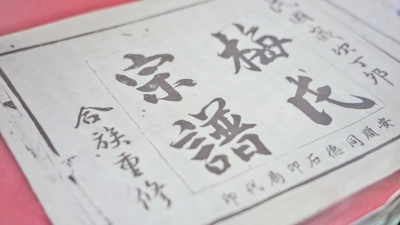 民國歲次丁卯
梅氏
宗譜
合族重修
安順同德石印局代印